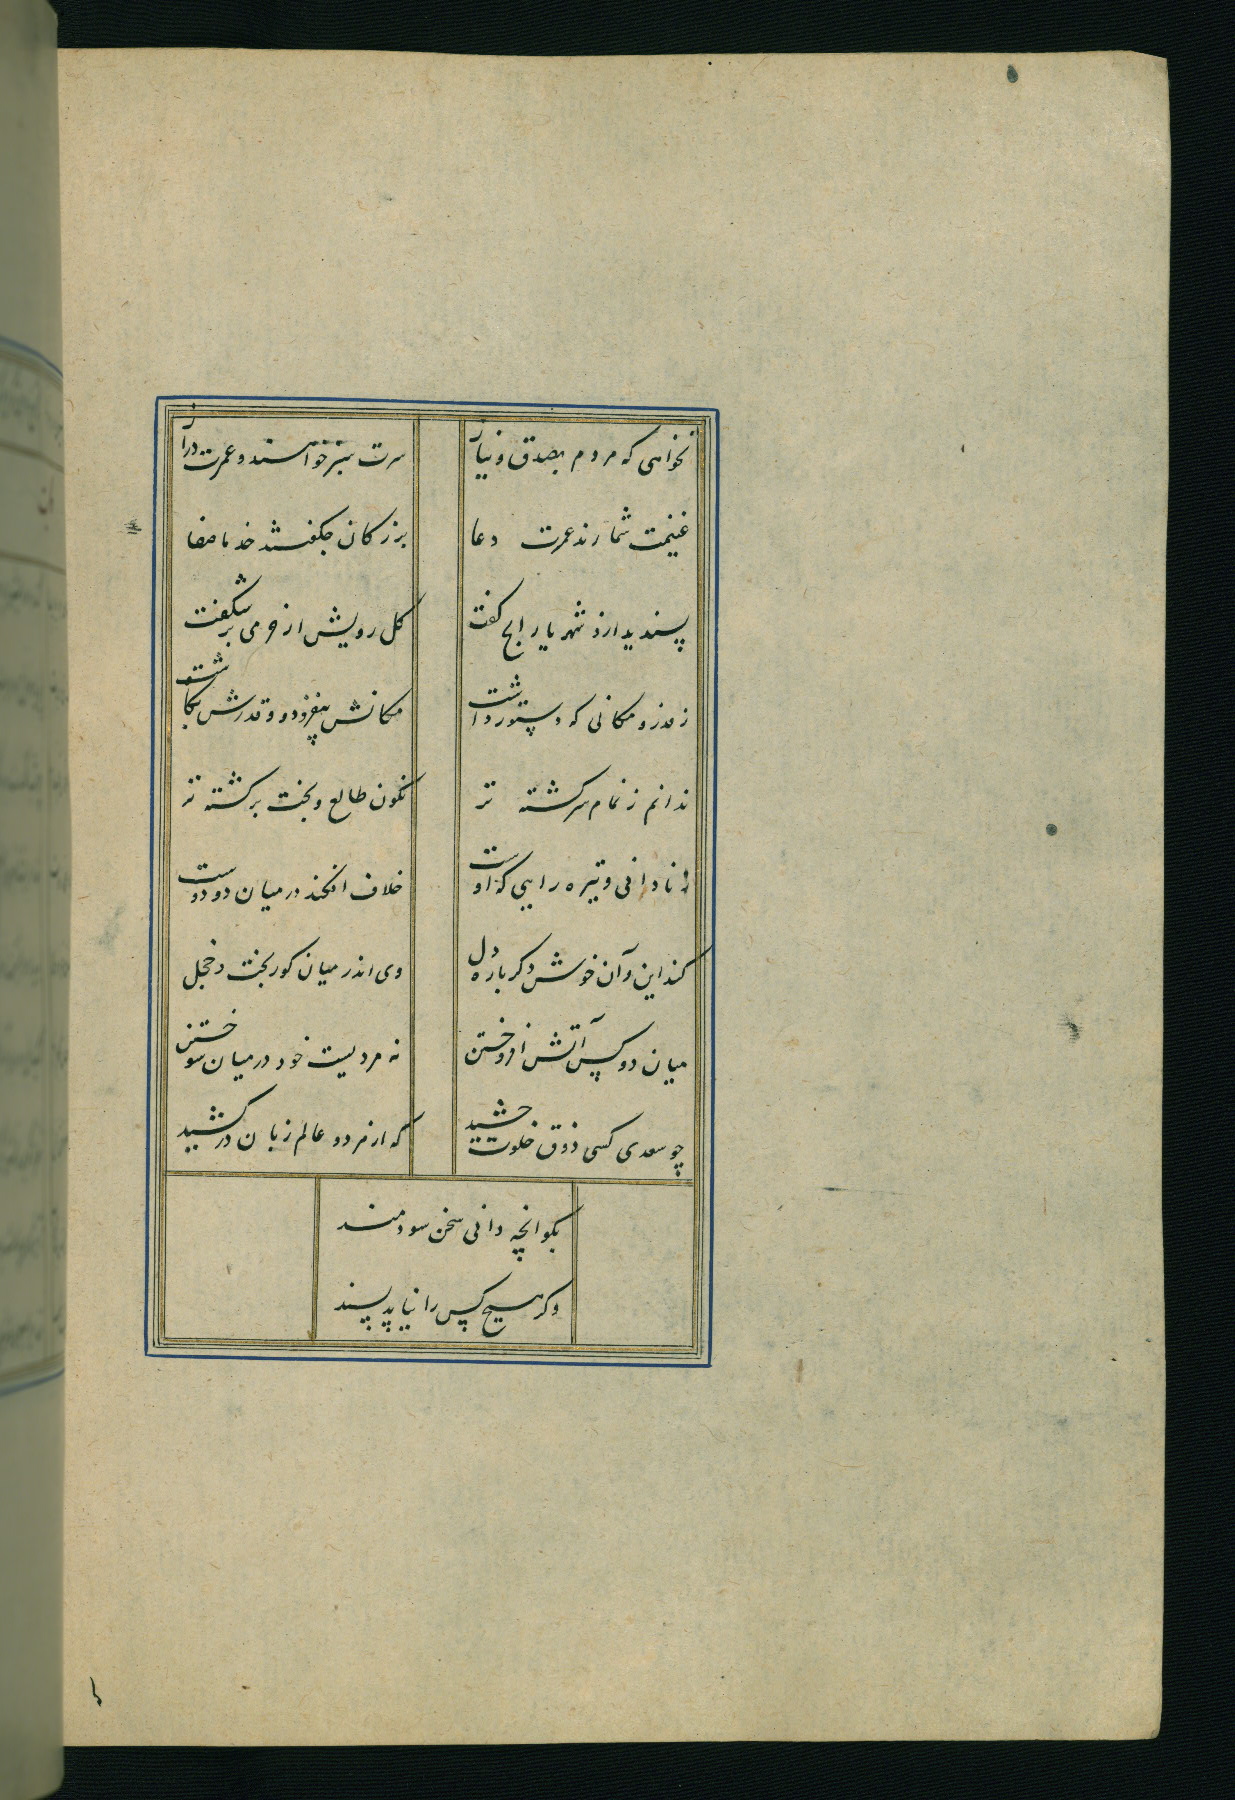 نخواهی که مردم بصدق و نیاز
سرت سبز خواهند و عمرت دراز
غنیمت شمارند عمرت دعا
بزرگان چکفتند خذ ما صفا
پسندید ازو شهریار انچ کفت
کل رویش از خرمی برشکفت
ز قدر و مکانی که دستور داشت
مکانش بیفزود و قدرش بکاشت
ندانم ز نمام سرکشته تر
نکون طالع و بخت برکشته تر
ز نادانی و تیره رایی که اوست
خلاف افکند در میان دو دوست
کند این و آن خوش دکر باره دل
وی اندر میان کور بخت و خجل
میان دو کس آتش افروختن
نه مردیست خود در میان سوختن
چو سعدی کسی ذوق خلوت چشید
که از هر دو عالم زبان درکشید
بکو انچه دانی سخن سودمند
وکر هیچ کس را نیاید پسند